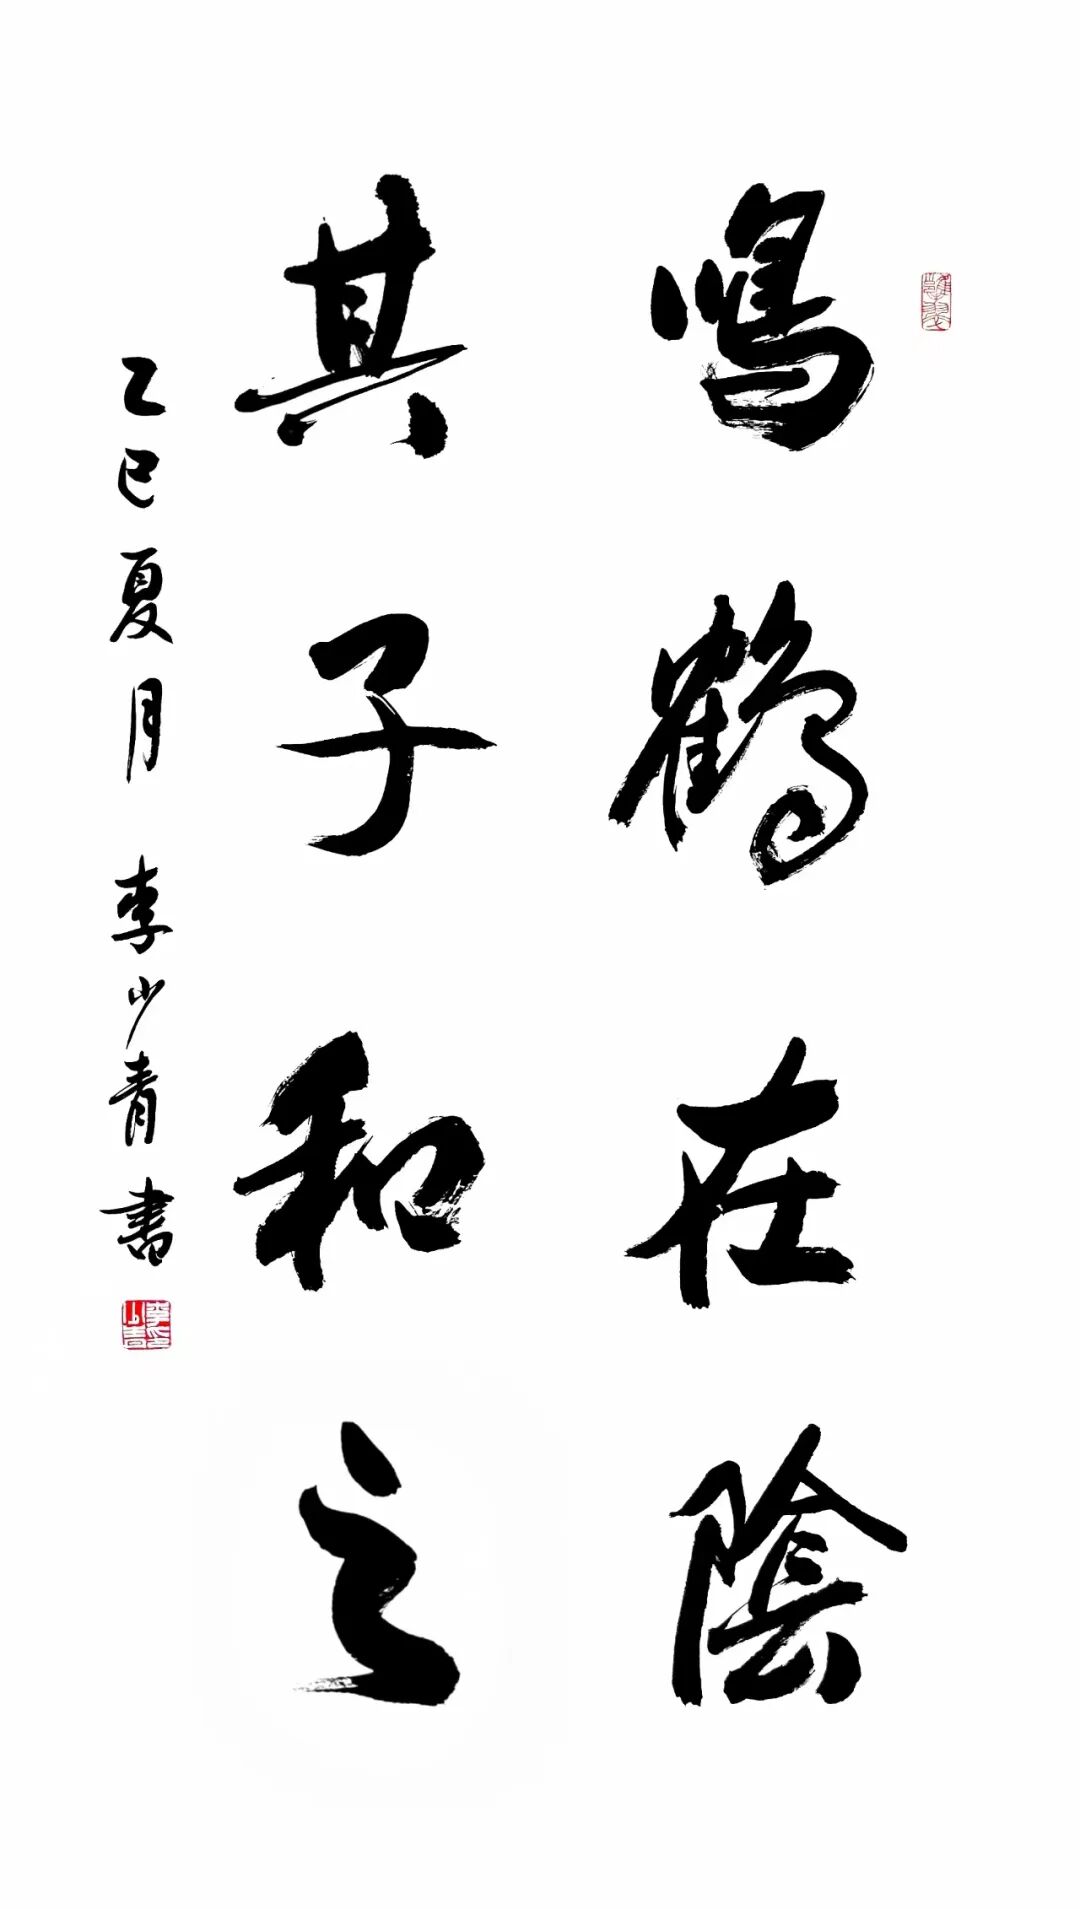 鳴鶴在陰
其子和之
乙巳夏月李少青書